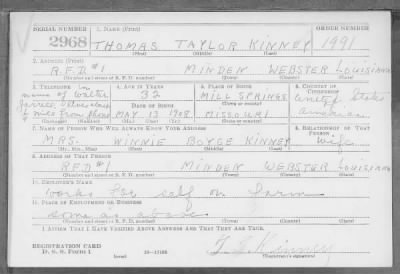 SERIAL NUMBER 1. NAME (Print) ORDER NUMBER
2968 THOMAS TAYLOR KINNEY 1991
(First) (Middle) (Last)
2. ADDRESS (Print)
R.F.D #1 MINDEN WEBSTER LOUISIANA
(Number and street or R. F. D. number) (Town) (County) (State)
3. TELEPHONE 4. AGE IN YEARS 5. PLACE OF BIRTH 6. COUNTRY OF CITIZENSHIP
name of Walter 32 MILL SPRINGS United States
DATE OF BIRTH (Town or county)
miles from phone MAY 13 1908 MISSOURI American
(Exchange) (Number) (Mo.) (Day) (Yr.) (State or country)
7. NAME OF PERSON WHO WILL ALWAYS KNOW YOUR ADDRESS 8. RELATIONSHIP OF THAT PERSON
MRS. WINNIE BOYCE KINNEY Wife
(Mr., Mrs., Miss) (First) (Middle) (Last)
9. ADDRESS OF THAT PERSON
RFD #1 MINDEN WEBSTER LOUISIANA
(Number and street or R. F. D. number) (Town) (County) (State)
10. EMPLOYER'S NAME
works for self on farm
11. PLACE OF EMPLOYMENT OR BUSINESS
same as above
(Number and street or R. F. D. number) (Town) (County) (State)
I AFFIRM THAT I HAVE VERIFIED ABOVE ANSWERS AND THAT THEY ARE TRUE.
REGISTRATION CARD
D. S. S. Form 1 T. T. Kinney
(Registrant's signature)